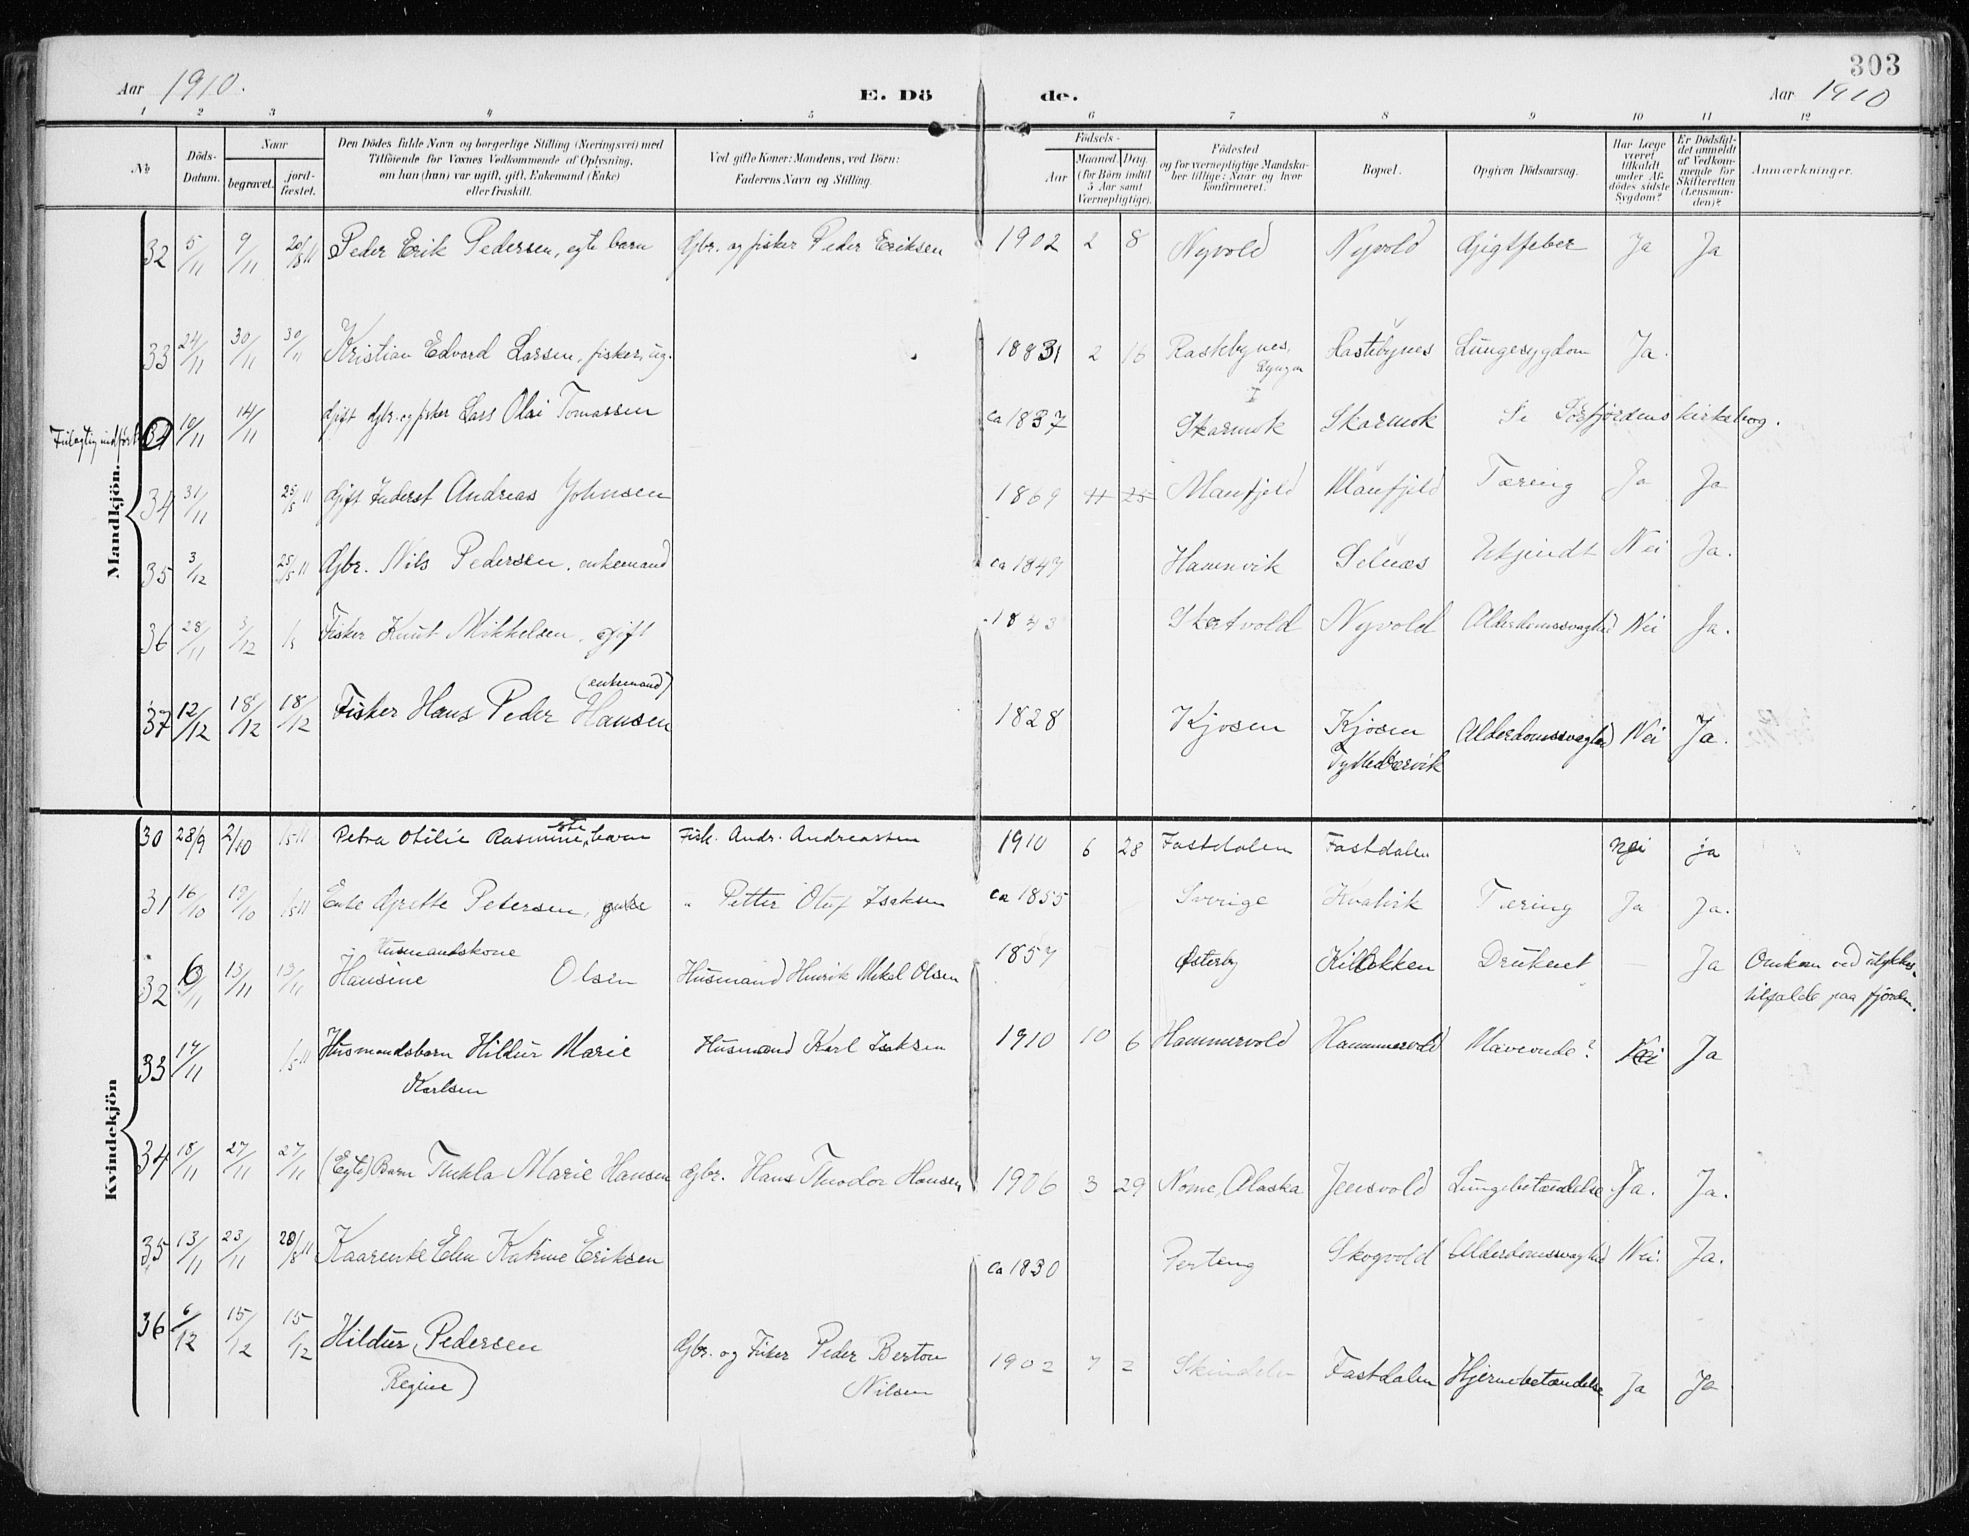 303
Aar 1910.
E. Dö de.
Aar 1910
1 2 3 4 5 6 7 8 9 10 11 12
No
Döds-Datum.
Naar
begravet.
jordfæstet.
Den Dödes fulde Navn og borgerlige Stilling (Næringsvei) med
Tilföiende for Voxnes Vedkommende af Oplysning,
om han (hun) var ugift, gift, Enkemand (Enke)
eller fraskilt.
Ved gifte Koner: Mandens, ved Börn:
Faderens Navn og Stilling.
Födsels-
Aar
Maaned. Dag.
(for Börn indtil
5 Aar samt
Værnepligtige).
Födested
og for værnepligtige Mandska-
ber tillige: Naar og hvor
konfirmeret.
Bopæl.
Opgiven Dödsaarsag.
Har Læge
været
tilkaldt
under Af-
dödes sidste
Sygdom?
Er Dödsfal-
det anmeldt
af Vedkom-
mende for
Skifteretten
(Lensman-
den)?
Anmærkninger.
Mandkjön.
32 5/11 9/11 20/8 11 Peder Erik Pedersen, egte barn Gbr. og fisker Peder Eriksen 1902 2 8 Nyvold Nyvold Gigtfeber Ja Ja
33 24/11 30/11 30/11 Kristian Edvard Larsen, fisker, ug. 1883 2 16 Rastebynes, Lyngen Rastebynes Lungesygdom Ja.
34 10/11 14/11 Gift Gbr. og fisker Lars Olai Tomassen ca 1837 Skarmok Skarmok Se Sörfjordens kirkebog.
34 31/11 25/5 11 Gift Inderst Andreas Johnsen 1869 11 25 Manfjeld Manfjeld Tæring Ja Ja
35 3/12 25/5 11 Gbr. Nils Pedersen, enkemand ca 1849 Hamnvik Selnæs Ukjendt Nei Ja.
36 28/11 3/12 Fisker Knut Mikkelsen, gift Skatvold Nyvold Alderdomssvaghed Nei Ja.
(enkemand)
37 12/12 18/12 18/12 Fisker Hans Peder Hansen 1828 Kjosen Kjosen Alderdomssvaghed Nei Ja.
Kvindekjön
30 28/9 2/10 15 11 Petra Otilie Rasmine, egte barn Fisk. Andr. Andreassen 1910 6 28 Fastdalen Fastdalen nei ja
31 16/10 19/10 Enke Grette Petersen, " Petter Oluf Isaksen ca 1855 Sverige Kvalvik Tæring Ja Ja.
Husmandskone
32 6/11 13/11 13/11 Hansine Olsen Husmand Henrik Mikal Olsen 1857 Østerby Druknet Ja Omkom ved ulykkes-
tilfælde paa fjorden.
33 17/11 Husmandsbarn Hildur Marie Husmand Karl Isaksen 1910 10 6 Hammervold Hammervold Maveonde? Nei Ja
Karlsen
34 18/11 27/11 27/11 (Egte) Barn Thekla Marie Hansen Gbr. Hans Theodor Hansen 1906 3 29 Nome, Alaska Jensvold Lungebetændelse Ja. Ja.
35 13/11 23/11 20/8 11 Elen Katrine Eriksen ca 1830 Perteng Skogvold Alderdomssvaghed Nei. Ja.
36 6/12 15/12 15/12 Hildur Pedersen Gbr. og Fisker Peder Berton 1902 7 2 Fastdalen Hjernebetændelse Ja Ja
Regine Nilsen